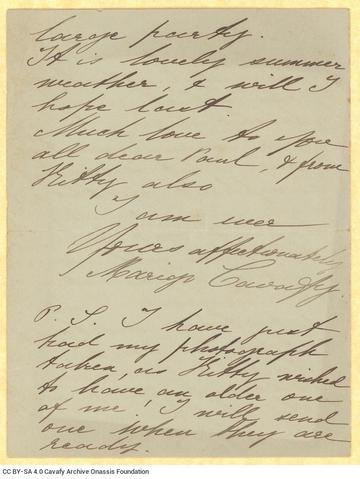 large party.
It is lovely summer
weather, & will I
hope last.
Much love to you
all dear Paul, & from
Kitty also
I am
Yours affectionately
Marion Cavafy.
P. S. I have just
had my photograph
taken, as Kitty wished
to have an older one
of me! I will send
one when they are
ready.
CC BY-SA 4.0 Cavafy Archive Onassis Foundation